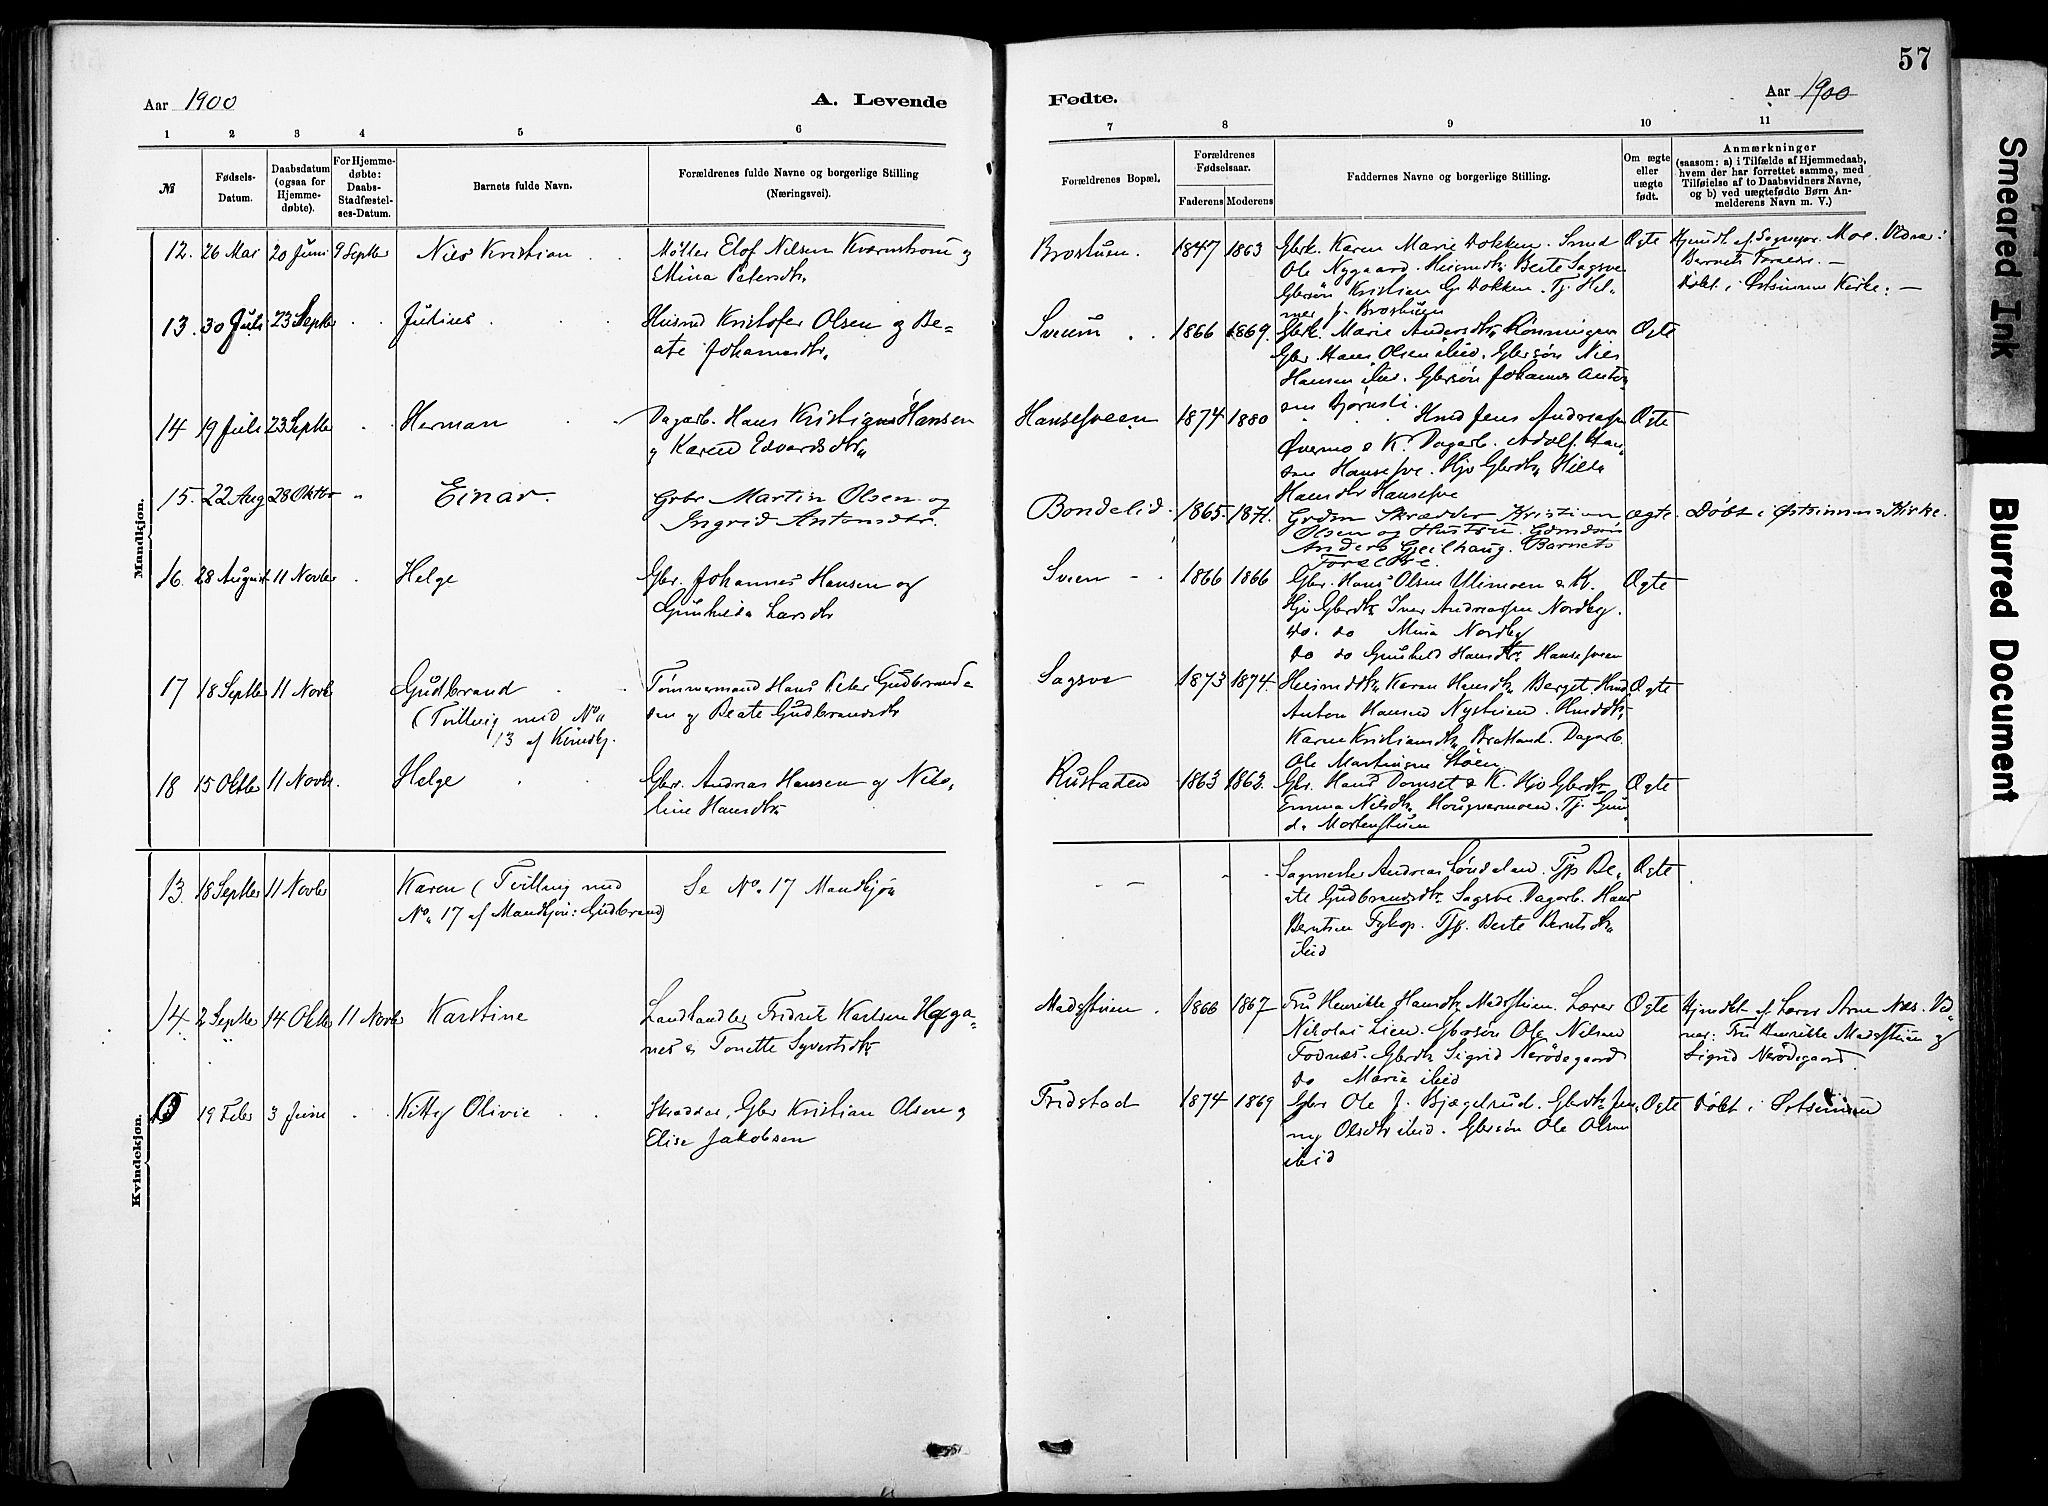 57
Aar 1900
A. Levende
Fødte.
Aar 1900
1 2 3 4 5 6
7 8 9 10 11
№
Fødsels-
Datum.
Daabsdatum
(ogsaa for
Hjemme-
døbte).
For Hjemme-
døbte:
Daabs-
Stadfæstel-
ses-Datum.
Barnets fulde Navn.
Forældrenes fulde Navne og borgerlige Stilling
(Næringsvei).
Forældrenes Bopæl.
Forældrenes
Fødselsaar.
Faderens Moderens
Faddernes Navne og borgerlige Stilling.
Om ægte
eller
uægte
født.
Anmærkninger
(saasom: a) i Tilfælde af Hjemmedaab,
hvem der har forrettet samme, med
Tilføielse af to Daabsvidners Navne,
og b) ved uægtefødte Børn An-
melderens Navn m. V.)
Mandkjøn.
12. 26 Mai 20 Juni 9 Septbr Nils Kristian
Møller Elof Nilsen Kvarnstrom og
Mina Petersdtr
Brostuen. 1847 1863
Gbrk. Karen Marie Dokken. Smed
Ole Nygaard. Husmdtr Berte Sagsve
Gbrsøn Kristian G. Dokken. Tj. Hel-
mer J. Brostuen
Ægte
Hjemdt af Sognepr. Moe. Vidner:
Barnets Forældre. —
Døbt i Østsinnen Kirke. —
13. 30 Juli 23 Septbr Julius
Husmd Kristofer Olsen og Be-
ate Johannesdtr
Sveum 1866 1869.
Gbrk. Marie Andersdtr Rønningen
Gbr. Hans Olsen ibid. Gbrsøn Nils
Hansen ibid. Gbrsøn Johannes Anton-
sen Bjørnsli.
Ægte
14 19 Juli 23 Septbr Herman
Dagarb. Hans Kristian Hansen
og Karen Edvardsdtr
Hansesveen 1874 1880
Hmd Jens Andreassen
Øvermo & K. Dagarb. Adolf Han-
sen Hansesve. Hjv Gbrdtr Hilda
Hansdtr Hansesve
Ægte
15. 22 Aug 28 Oktbr Einar.
Grbr Martin Olsen og
Ingrid Antonsdtr.
Bondelid. 1865. 1871.
Grdm Skrædder Kristian
Olsen og Hustru. Grdmdsøn
Anders Geilhaug. Barnets
Forældre.
ægte. Døbt i Østsinnen Kirke.
16. 28 August 11 Novbr Helge
Gbr. Johannes Hansen og
Gunhilda Larsdtr
Sveen 1866 1866
Gbr. Hans Olsen Ulimoen & K.
Hjv Gbrdtr Iver Andreassen Nordby.
do. do Mina Nordby
do do Gunhild Hansdtr Hansesveen
Ægte
17 18 Septbr 11 Novbr Gudbrand
(Tvilling med No
13 af Kvindkj.
Tømmermand Hans Peter Gudbrand-
sen og Beate Gudbrandsdtr
Sagsve 1873 1874.
Husmdk Karen Hansdtr Berget. Hmd
Anton Hansen Nystuen. Hmddtr
Karen Kristiansdtr Bratland. Dagarb.
Ole Martinsen Støen.
Ægte
18 15 Oktbr 11 Novbr. Helge
Gbr. Andreas Hansen og Niko-
line Hansdtr
Rustaden 1863 1863.
Gbr. Hans Domset & K. Hjv Gbrdtr
Emma Nilsdtr Hougnermoen. Tj. Gun-
da Mortenstuen
Ægte
Kvindekjøn.
13. 18 Septbr 11 Novbr Karen (Tvilling med
No 17 af Mandkjøn: Gudbrand)
Se No. 17 Mandkjøn
Sagmester Andreas Løndalen. Tjp Be-
ate Gudbrandsdtr Sagsve. Dagarb. Hans
Berntsen Fykop. Tjp. Berte Berntsdtr
ibid
Ægte
14. 2 Septbr 14 Oktbr 11 Novbr Karstine
Landhandler Fredrik Karlsen Haga-
nes & Tonette Syvertsdtr
Madsstuen. 1866 1867
Fru Henrikke Hansdtr Madsstuen. Lærer
Nikolai Lien. Gbrsøn Ole Nilsen
Fodnæs. Gbrdtr Sigrid Nerødegaard
do Marie ibid
Ægte
Hjemdøbt af Lærer Arne Næs. Vid-
ner: Fru Henrikke Madsstuen og
Sigrid Nerødegaard.
15 19 Febr 3 Juni Kitty Olivie
Skrædder, Gbr Kristian Olsen og
Elise Jakobsen
Fridstad 1874 1869
Gbr Ole J. Bjægelrud. Gbrdtr Jen-
ny Olsdtr ibid. Gbrsøn Ole Olsen
ibid
Ægte Døbt i Østsinnen
Smeared Ink
Blurred Document